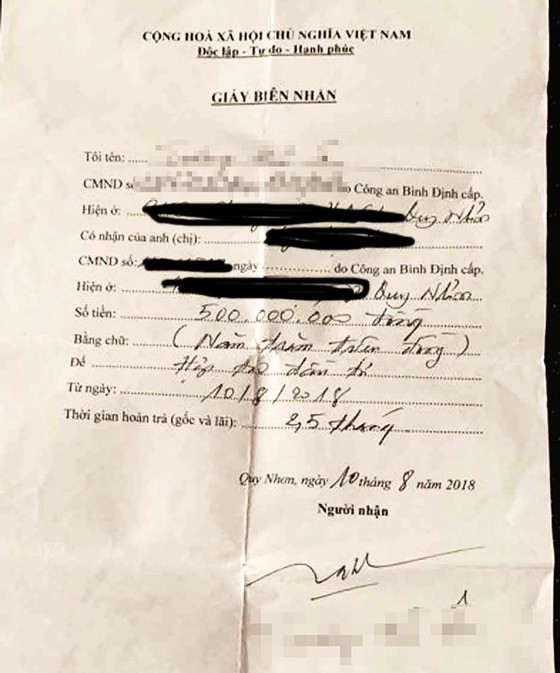 CỘNG HOÀ XÃ HỘI CHỦ NGHĨA VIỆT NAM
Độc lập - Tự do - Hạnh phúc
GIẤY BIÊN NHẬN
Tôi tên:
CMND số do Công an Bình Định cấp.
Hiện ở: Quy Nhơn
Có nhận của anh (chị):
CMND số: ngày do Công an Bình Định cấp.
Hiện ở: Quy Nhơn
Số tiền: 500.000.000 đồng
Bằng chữ: (Năm trăm triệu đồng)
Để Hợp tác đầu tư
Từ ngày: 10/8/2018
Thời gian hoàn trả (gốc và lãi): 2,5 tháng
Quy Nhơn, ngày 10 tháng 8 năm 2018
Người nhận